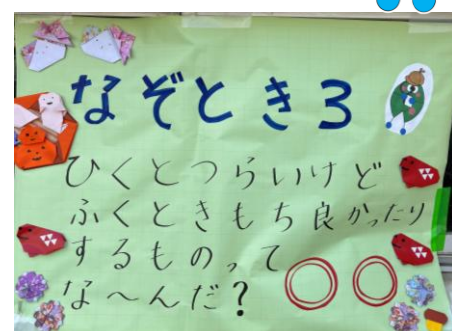 なぞとき3
ひくとつらいけど
ふくときもち良かったり
するものって
な〜んだ?